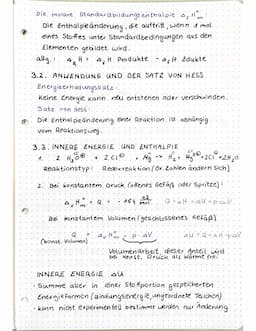 Die molare Standardbildungsenthalpie ΔfH°m
Die Enthalpieänderung, die auftritt, wenn 1 mol
eines Stoffes unter Standardbedingungen aus den
Elementen gebildet wird.
allg.: ΔRH = ΔfH Produkte - ΔfH Edukte
3.2. ANWENDUNG UND DER SATZ VON HESS
Energieerhaltungssatz:
Keine Energie kann neu entstehen oder verschwinden.
Satz von Hess:
Die Enthalpieänderung einer Reaktion ist abhängig
vom Reaktionsweg.
3.3. INNERE ENERGIE UND ENTHALPIE
1. 2 H3O⊕ + 2 Cl⊖ + Mg → H2 + Mg2⊕ + 2Cl⊖ + 2H2O
Reaktionstyp: Redoxreaktion (Ox. Zahlen ändern sich)
2. Bei konstantem Druck (offenes Gefäß oder Spritze):
ΔRH°m = Q = -467
Q = ΔU + p·ΔV
Bei konstantem Volumen (geschlossenes Gefäß)
Q = ΔRH°m - p·ΔV
(konst. Volumen)
Volumenarbeit dieser Anteil wird
bei konst. Druck als Wärme frei
INNERE ENERGIE ΔU
- Summe aller in einer Stoffportion gespeicherten
Energieformen (Bindungsenergie, ungeordnete Teilchen)
- kann nicht experimentell bestimmt werden nur Änderung